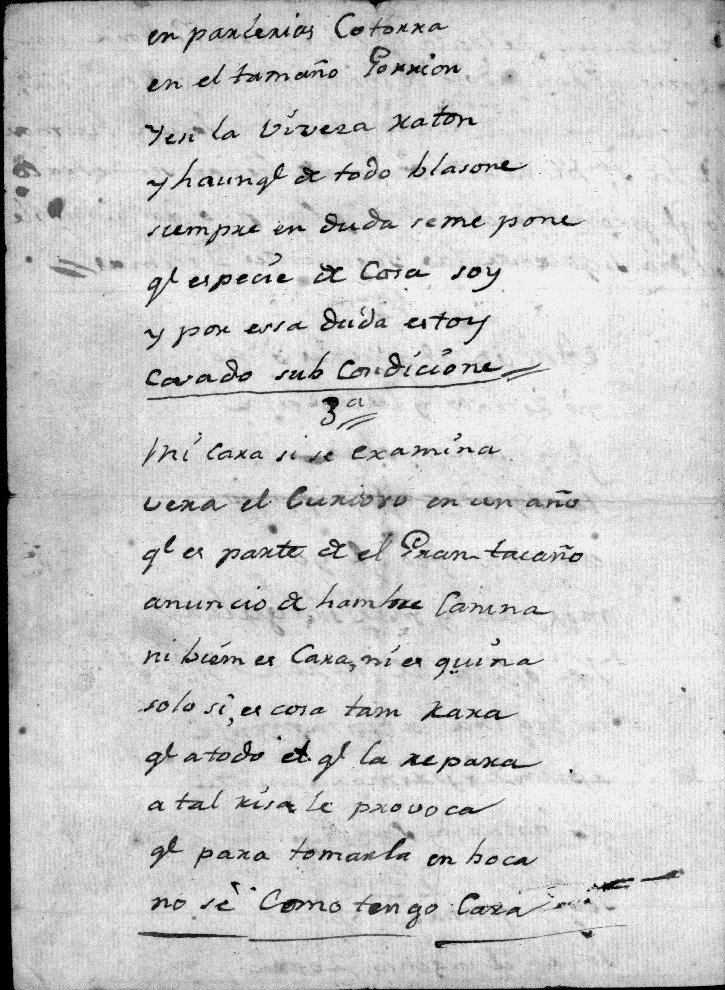 en parlerias Cotorra
en el tamaño Gorrion
y esi la vivera raton
y haunq.l de todo blasone
siempre en duda seme pone
q.l especie de Cosa soy
y por essa duda estoy
Cavado sub Condicione
3.a
Mi Cara si se examina
vera el Curioso en un año
q.l es parte de el Gran-tacaño
anuncio de hambre Canina
ni biém es Cara, ni es quina
solo si, es cosa tam rara
q.l a todo el q.l la repara
a tal risa le provoca
q.l para tomarla en boca
no sè Como tengo Cara